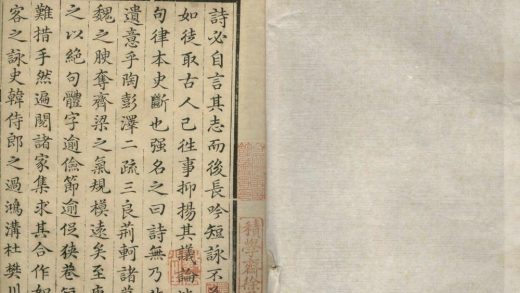 詩必自言其志而後長吟短詠不
如徒取古人已徃事抑揚其議論
句律本史斷也强名之曰詩無乃
遺意乎陶彭澤二疏三良荆軻諸
魏之腴奪齊梁之氣規模遠矣至
之以絶句體字逾儉節逾促狹卷
難措手然遍閱諸家集求其合作如
客之詠史韓侍郎之過鴻溝杜樊川
積學齋徐